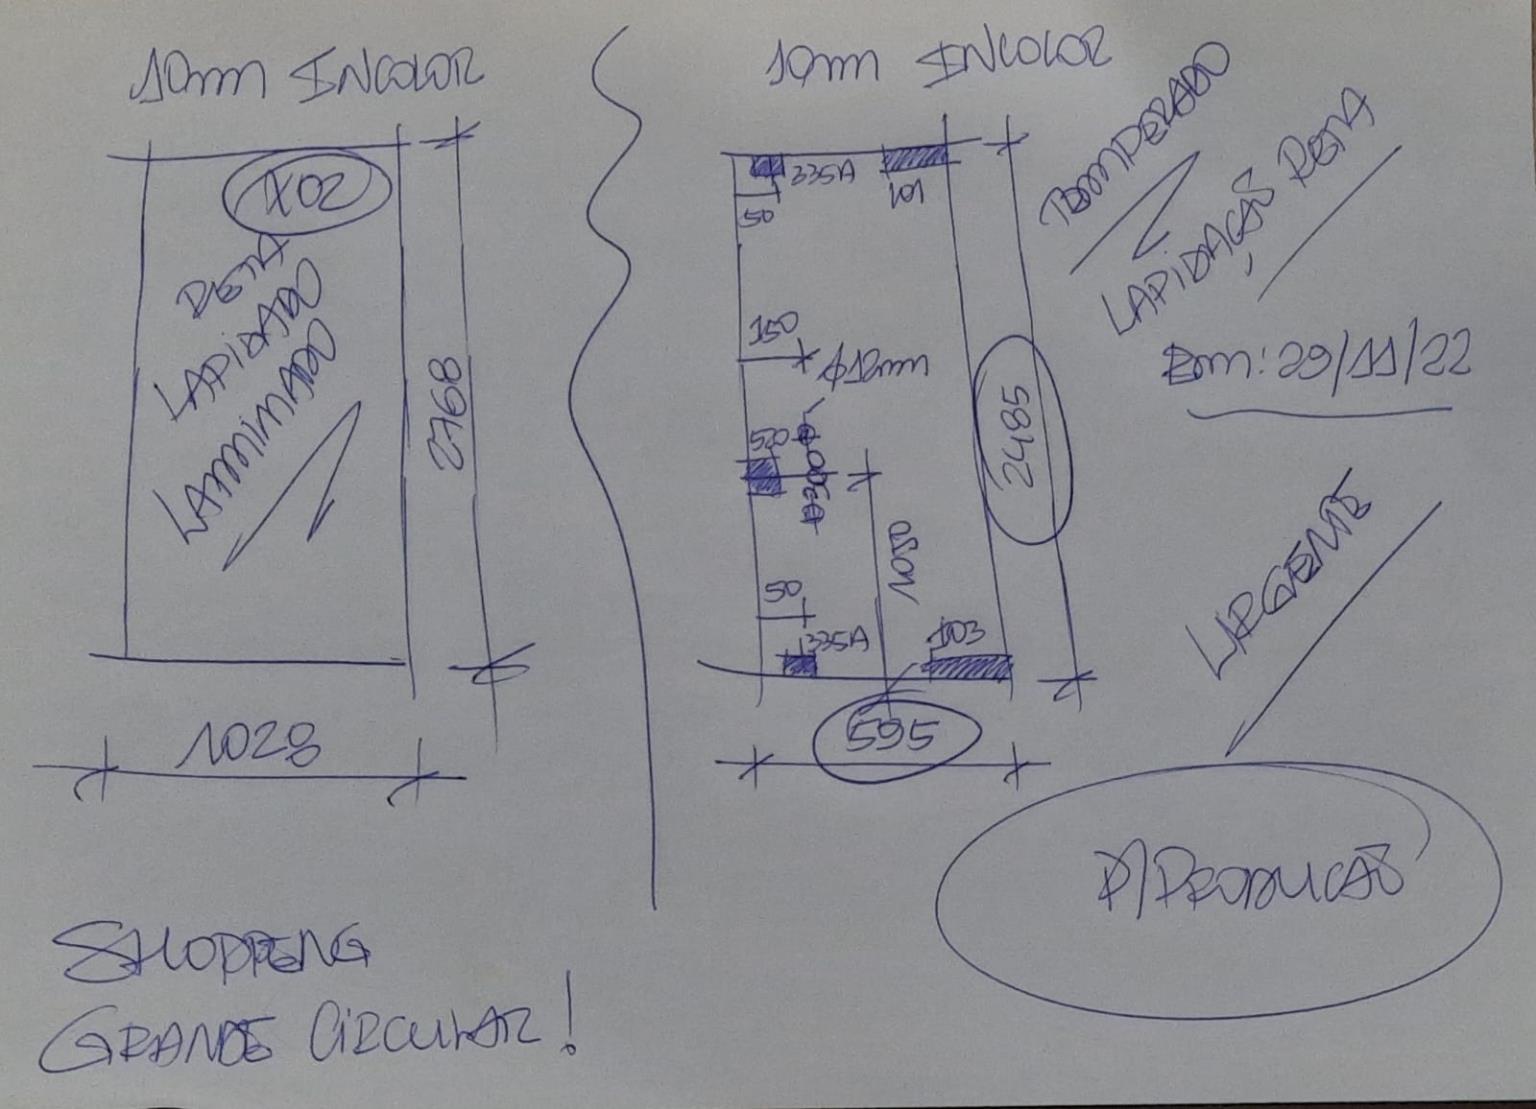 10mm INCOLOR
X02
RETA
LAPIDADO
LAMINADO
2768
1028
10mm INCOLOR
335A
101
50
150
Φ12mm
50
1050
50
335A
103
2485
595
TEMPERADO
LAPIDAÇÃO RETA
Em: 29/11/22
URGENTE
P/PRODUCAÕ
SHOPPING
GRANDE CIRCULAR!